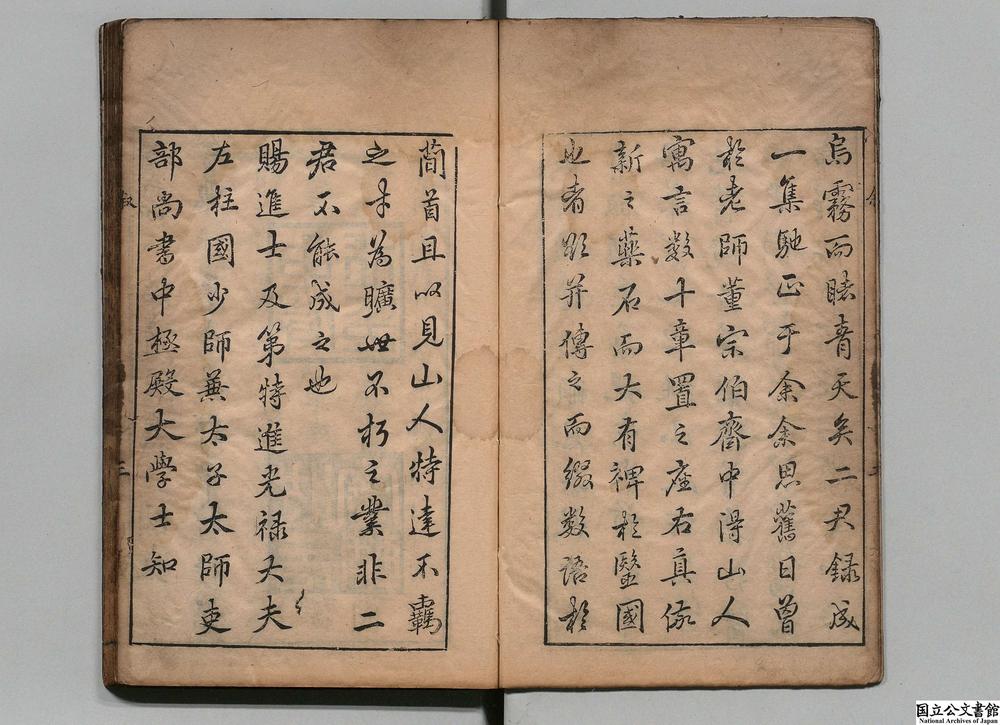 烏霧而睹青天矣二尹録成
一集馳正于余余思舊日曾
於老師董宗伯齋中得山人
寓言数十章置之座右真依
新之藥石而大有裨於醫國
也者欣并傳之而綴数語於
簡首且以見山人特達不羈
之才為曠世不朽之業非二
君不能成之也
賜進士及第特進光禄大夫
左柱國少師兼太子太師吏
部尚書中極殿大學士知
叙
三
国立公文書館
National Archives of Japan